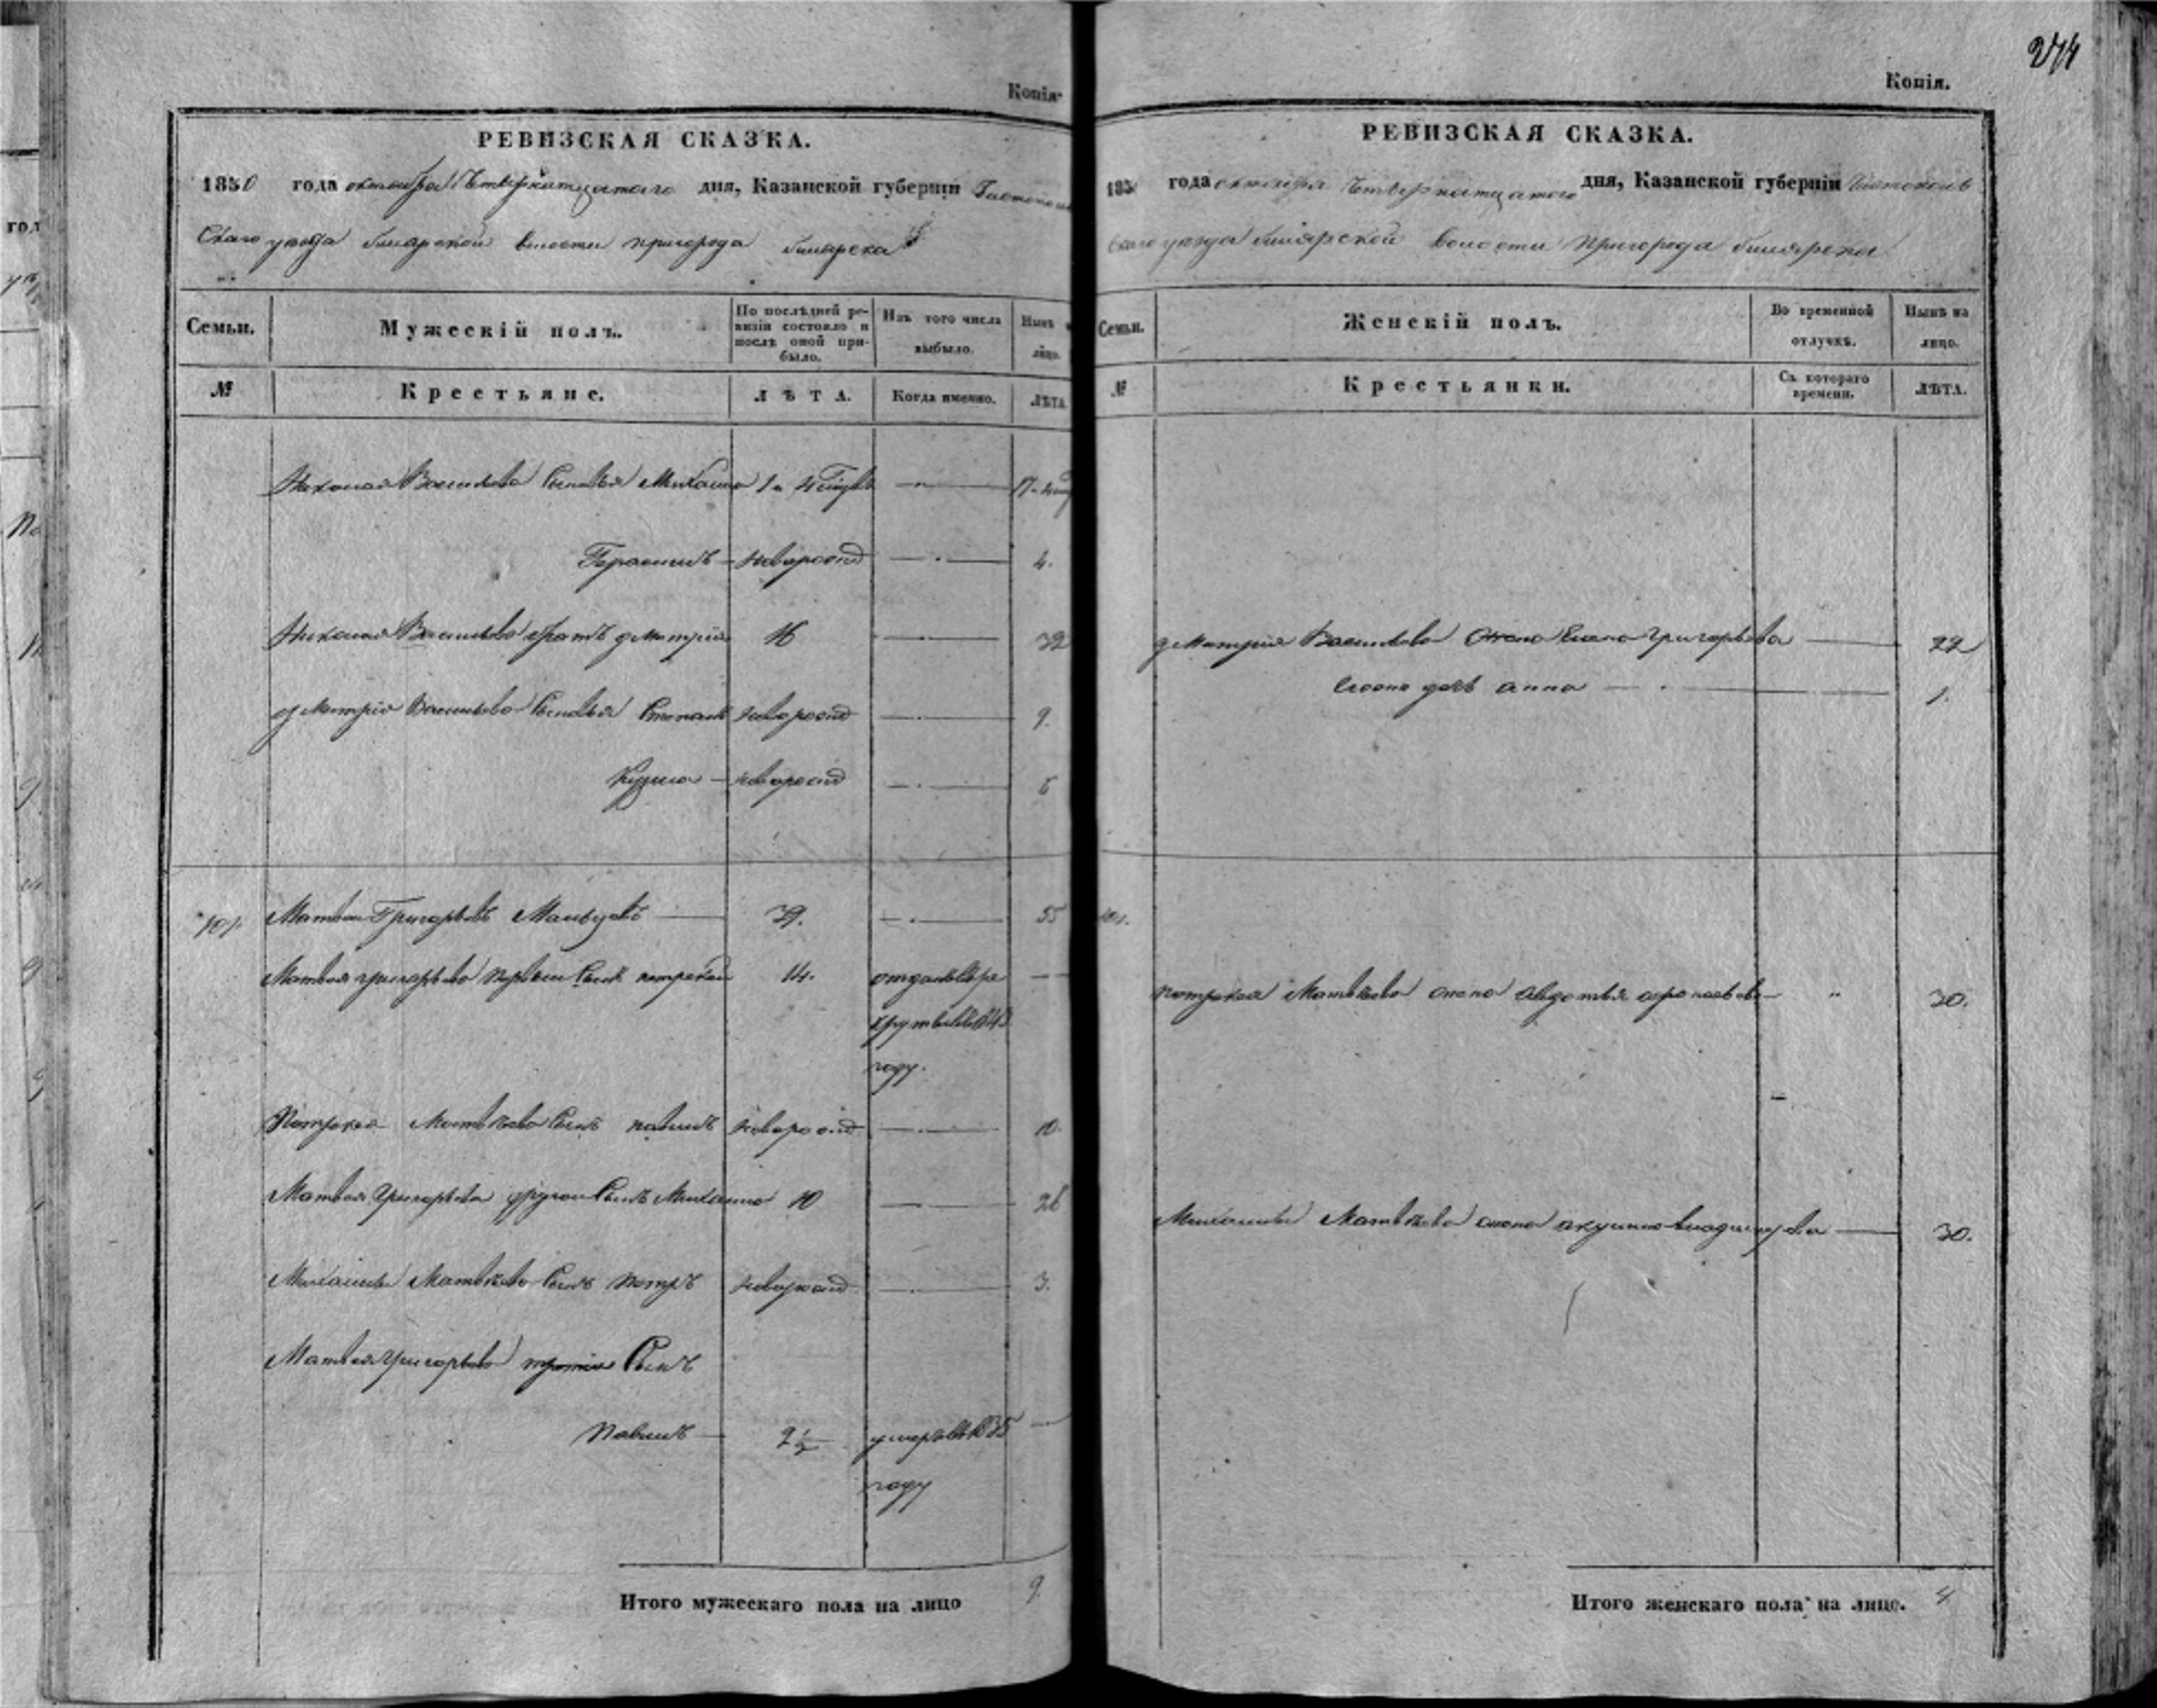 274
Копія.
РЕВИЗСКАЯ СКАЗКА.
1850 года октября четырнатцатого дня, Казанской губерніи Чистополь
скаго уезда билярской волости пригорода билярска
Семьи.
Мужескій полъ.
По послѣдней ревизіи состояло и послѣ оной прибыло.
Изъ того числа выбыло.
Нынѣ
лицо.
№
Крестьяне.
ЛѢТА.
Когда именно.
ЛѢТА
Николая Васильева сыновья Михаило 1 4
Герасимъ новорожд 4.
Николая Васильева братъ дмитрій 16 32
дмитрія Васильева сыновья Степанъ новорожд 9.
Кузма новорожд 6
101. Матвей Григорьевъ 39. 55
Матвея григорьева первый сынъ патрекей 14. отданъ въ ре
круты въ 1843
году.
Патрекея Матвеева сынъ павилъ новорожд 10.
Матвея Григорьева другой сынъ Михаило 10 26
Михаилы Матвеева сынъ петръ новорожд 3.
Матвея Григорьева третій сынъ
Павилъ 2 1/2 умеръ въ 1835
году
Итого мужескаго пола на лицо 9.
Копія.
РЕВИЗСКАЯ СКАЗКА.
185 года октября четырнатцатого дня, Казанской губерніи Чистополь
скаго уезда билярской волости пригорода билярска
Семьи.
Женскій полъ.
Во временной отлучкѣ.
Нынѣ на лицо.
№
Крестьянки.
Съ котораго времени.
ЛѢТА.
дмитрія Васильева жена Елена григорьева 22
дочь анна 1.
101.
патрекея Матвеева жена авдотья 30.
Михаилы Матвеева жена акулина 30.
Итого женскаго пола на лицо. 4